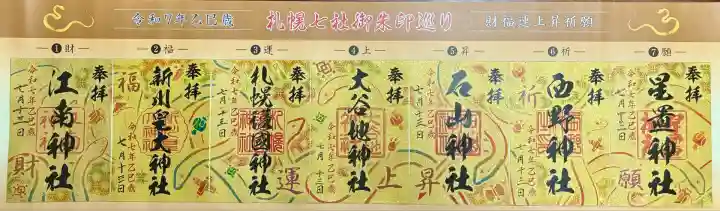 令和7年乙巳歳
札幌七社御朱印巡り
財福運上昇祈願
❶財
❷福
❸運
❹上
❺昇
❻祈
❼願
奉拝
江南神社
令和七年乙巳歳
七月十三日
財
奉拝
新川皇大神社
令和七年乙巳歳
七月十三日
福
奉拝
札幌護國神社
令和七年乙巳歳
七月十三日
運
奉拝
大谷地神社
令和七年乙巳歳
七月十三日
上
奉拝
石山神社
令和七年乙巳歳
七月十三日
昇
奉拝
西野神社
令和七年乙巳歳
七月十三日
祈
奉拝
星置神社
令和七年乙巳歳
七月十三日
願